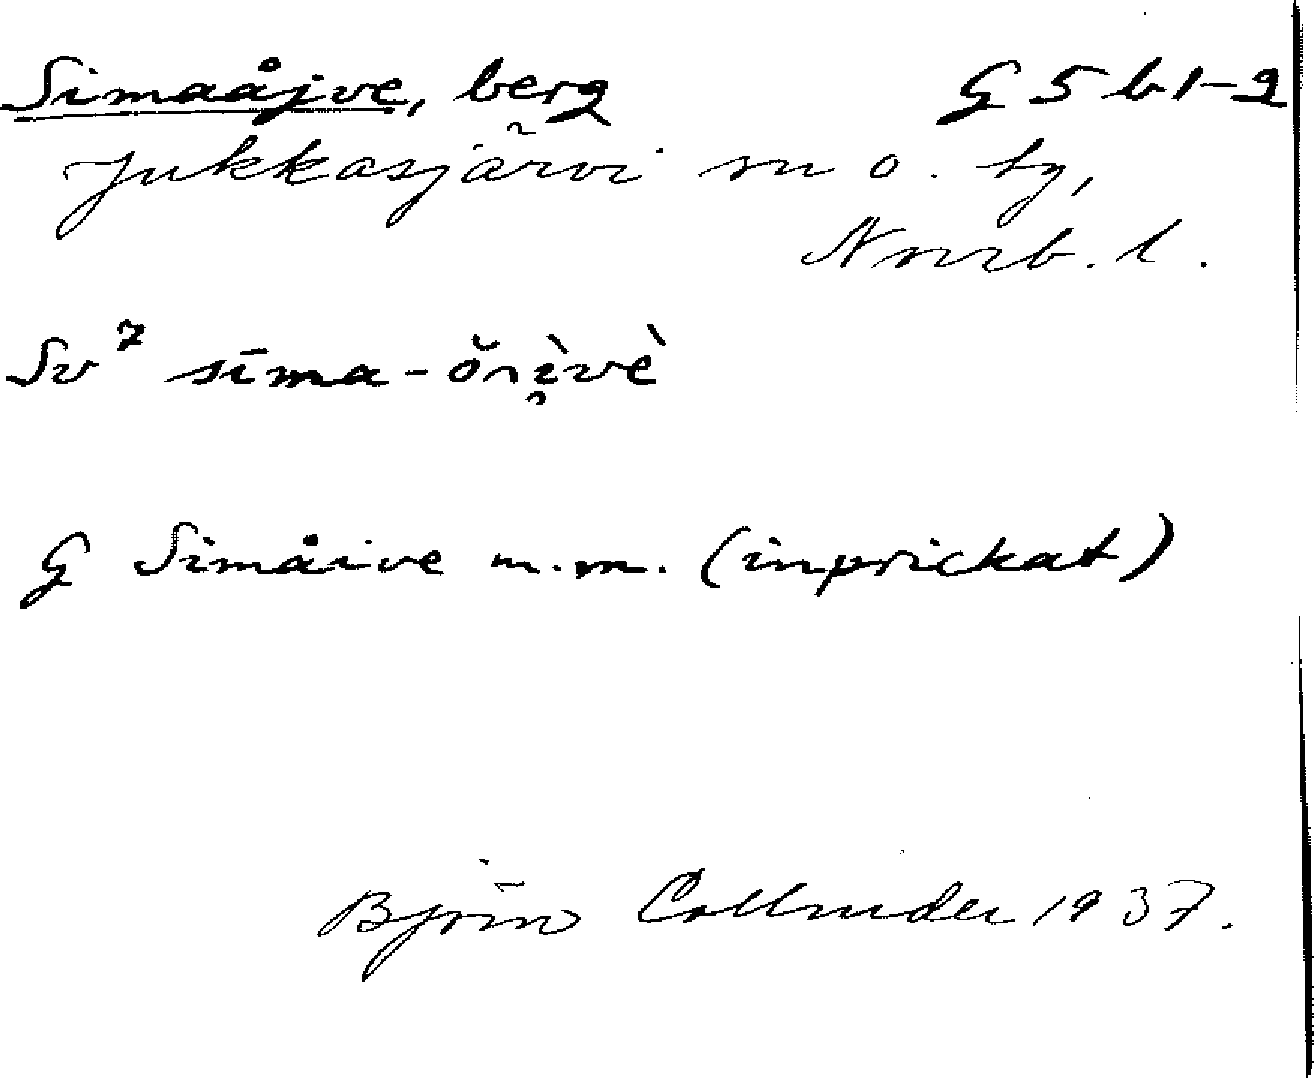 Simaåjve, berg G 5 b1-2
Jukkasjärvi sn o. tg,
Norrb. l.
Sv⁷ sīma-
G Simåive m.m. (inprickat)
Björn Collinder 1937.